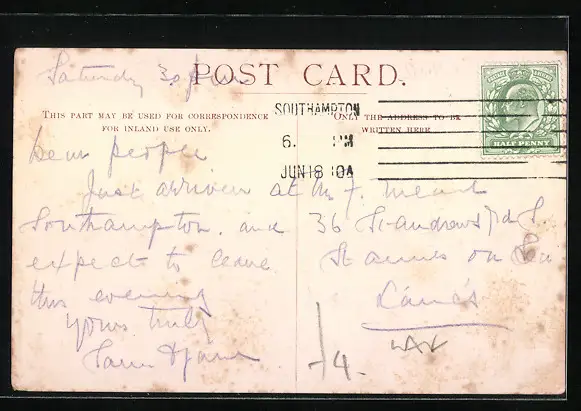 Saturday 3.
POST CARD.
THIS PART MAY BE USED FOR CORRESPONDENCE
FOR INLAND USE ONLY.
ONLY THE ADDRESS TO BE
WRITTEN HERE
SOUTHAMPTON
6. PM
JUN 18 10A
HALF PENNY
Dear people
Just arrived at
Southampton and
expect to leave
this evening
yours truly
Sam
36 St andrews rd S.
St annes on Sea
Lancs
4.